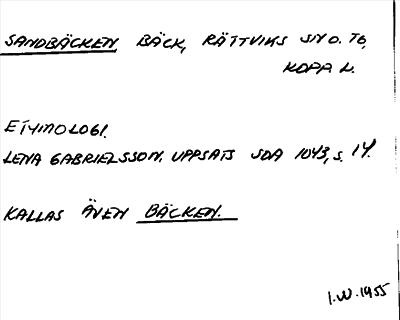 SANDBÄCKEN BÄCK, RÄTTVIKS SN O. TG,
KOPP. L.
ETYMOLOGI.
LENA GABRIELSSON. UPPSATS SDA 1043, S. 14.
KALLAS ÄVEN BÄCKEN.
I.W. 1955